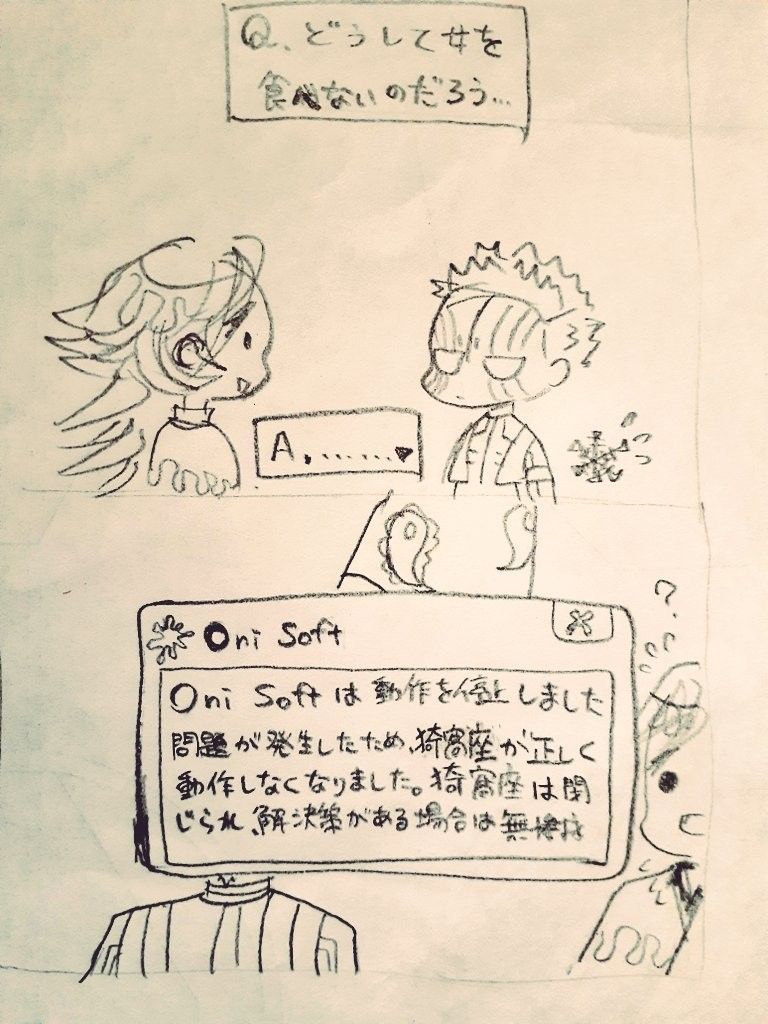 Q、どうして女を
食べないのだろう…
A、.......♥
Oni Soft
Oni Soft は動作を停止しました
問題が発生したため、猗窩座が正しく
動作しなくなりました。猗窩座は閉
じられ、解決策がある場合は無惨様
?